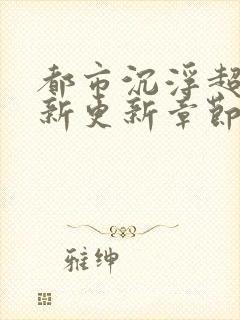 都市沉浮超
新更新章节
雅绅